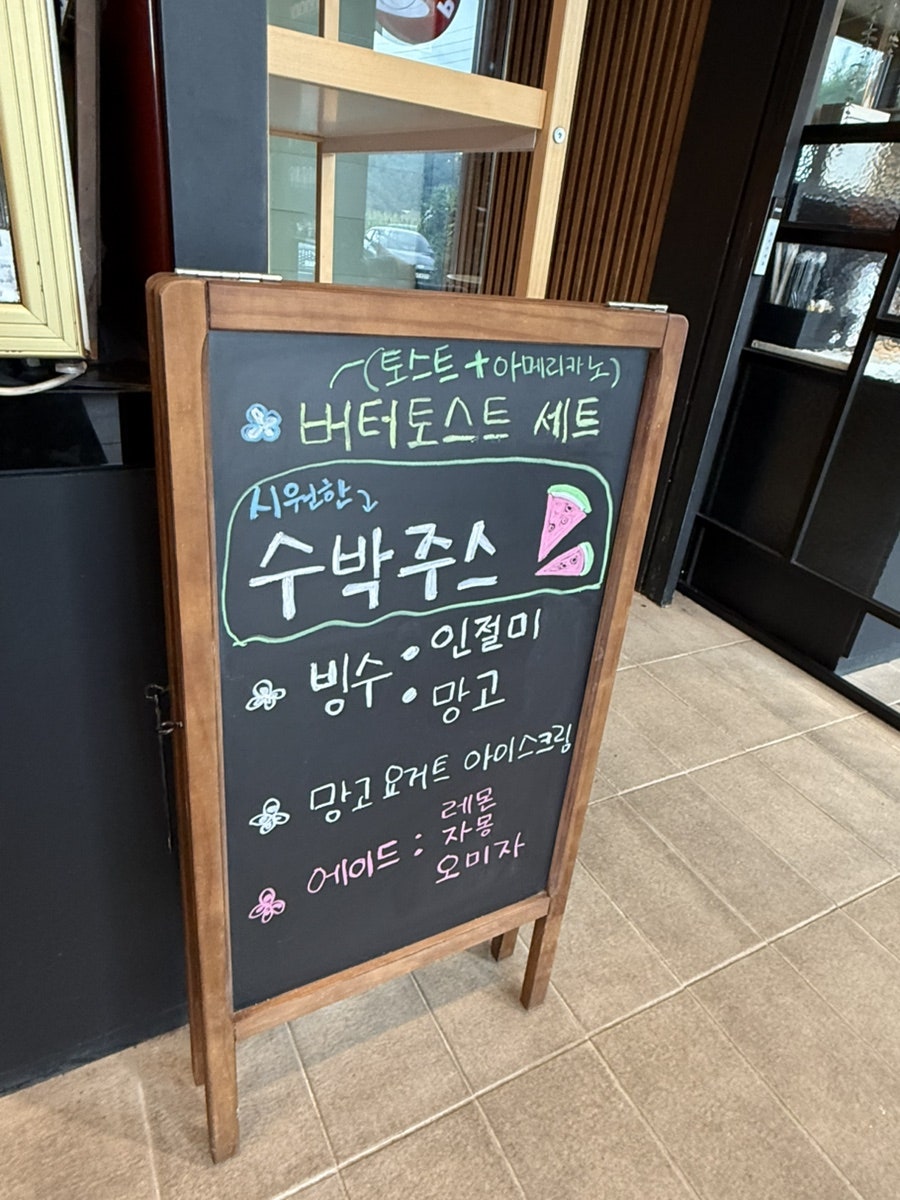 (토스트+아메리카노)
버터토스트 세트
시원한
수박주스
빙수 • 인절미
• 망고
망고요거트 아이스크림
에이드 : 레몬
자몽
오미자